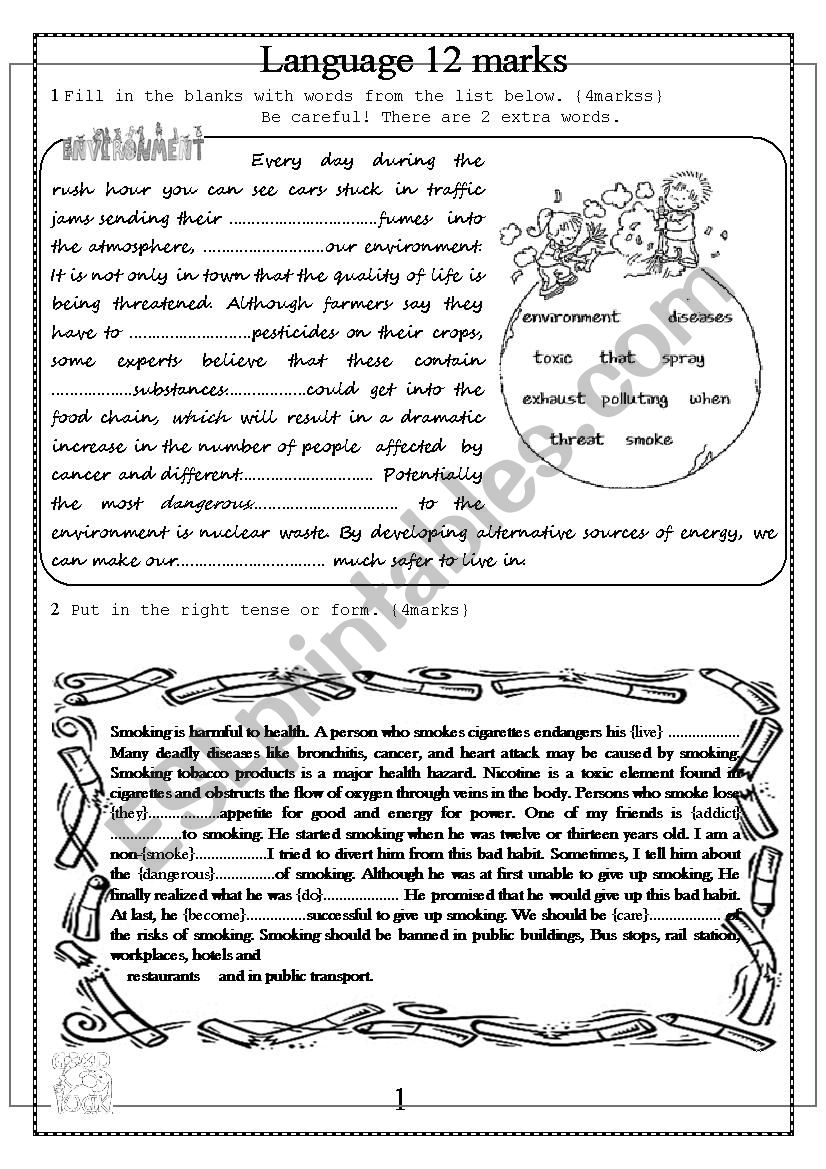 Language 12 marks
1 Fill in the blanks with words from the list below. {4markss}
Be careful! There are 2 extra words.
ENVIRONMENT
Every day during the
rush hour you can see cars stuck in traffic
jams sending their ...............................fumes into
the atmosphere, ..........................our environment.
It is not only in town that the quality of life is
being threatened. Although farmers say they
have to ..........................pesticides on their crops,
some experts believe that these contain
.................substances.................could get into the
food chain, which will result in a dramatic
increase in the number of people affected by
cancer and different............................ Potentially
the most dangerous............................... to the
environment is nuclear waste. By developing alternative sources of energy, we
can make our................................ much safer to live in.
environment diseases
toxic that spray
exhaust polluting when
threat smoke
2 Put in the right tense or form. {4marks}
Smoking is harmful to health. A person who smokes cigarettes endangers his {live} ..................
Many deadly diseases like bronchitis, cancer, and heart attack may be caused by smoking.
Smoking tobacco products is a major health hazard. Nicotine is a toxic element found in
cigarettes and obstructs the flow of oxygen through veins in the body. Persons who smoke lose
{they}.................appetite for good and energy for power. One of my friends is {addict}
..................to smoking. He started smoking when he was twelve or thirteen years old. I am a
non-{smoke}..................I tried to divert him from this bad habit. Sometimes, I tell him about
the {dangerous}...............of smoking. Although he was at first unable to give up smoking, He
finally realized what he was {do}................... He promised that he would give up this bad habit.
At last, he {become}...............successful to give up smoking. We should be {care}.................. of
the risks of smoking. Smoking should be banned in public buildings, Bus stops, rail station,
workplaces, hotels and
restaurants and in public transport.
GOOD
LUCK
1
ESLprintables.com